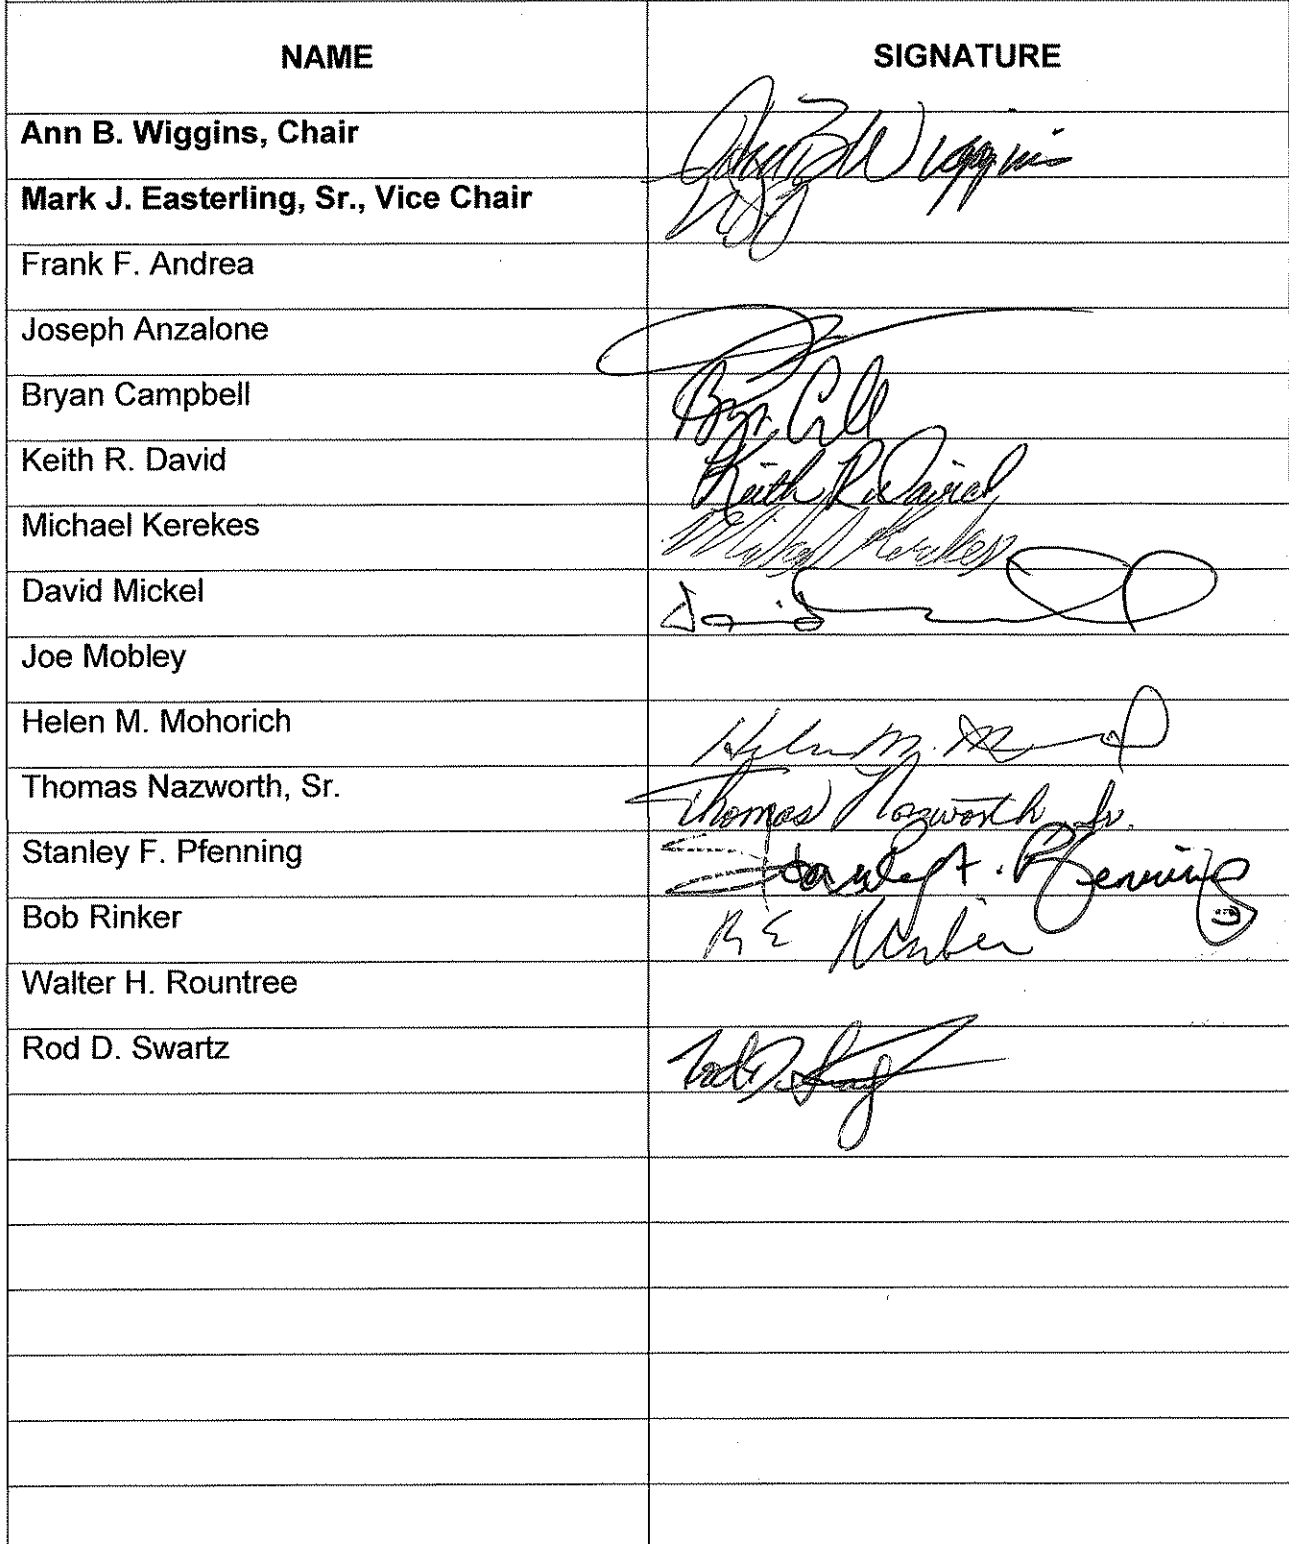 NAME SIGNATURE
Ann B. Wiggins, Chair Ann B W Wiggins
Mark J. Easterling, Sr., Vice Chair
Frank F. Andrea
Joseph Anzalone
Bryan Campbell
Keith R. David Keith R. David
Michael Kerekes Michael Kerekes
David Mickel David
Joe Mobley
Helen M. Mohorich Helen M.
Thomas Nazworth, Sr. Thomas Nazworth, Sr.
Stanley F. Pfenning Stanley F. Pfenning
Bob Rinker R E Rinker
Walter H. Rountree
Rod D. Swartz Rod D.